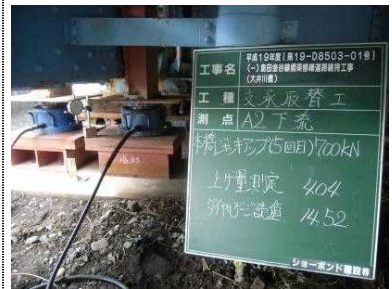 平成19年度[第19-D8503-01号]
工事名 (一)島田金谷線橋梁修繕道路維持工事
(大井川橋)
工 種 支承取替工
測 点 A2下流
本橋ジャッキアップ(5回目)700kN
上げ量測定 4.04
ダイヤルゲージ読値 14.52
ショーボンド建設㈱
18.03